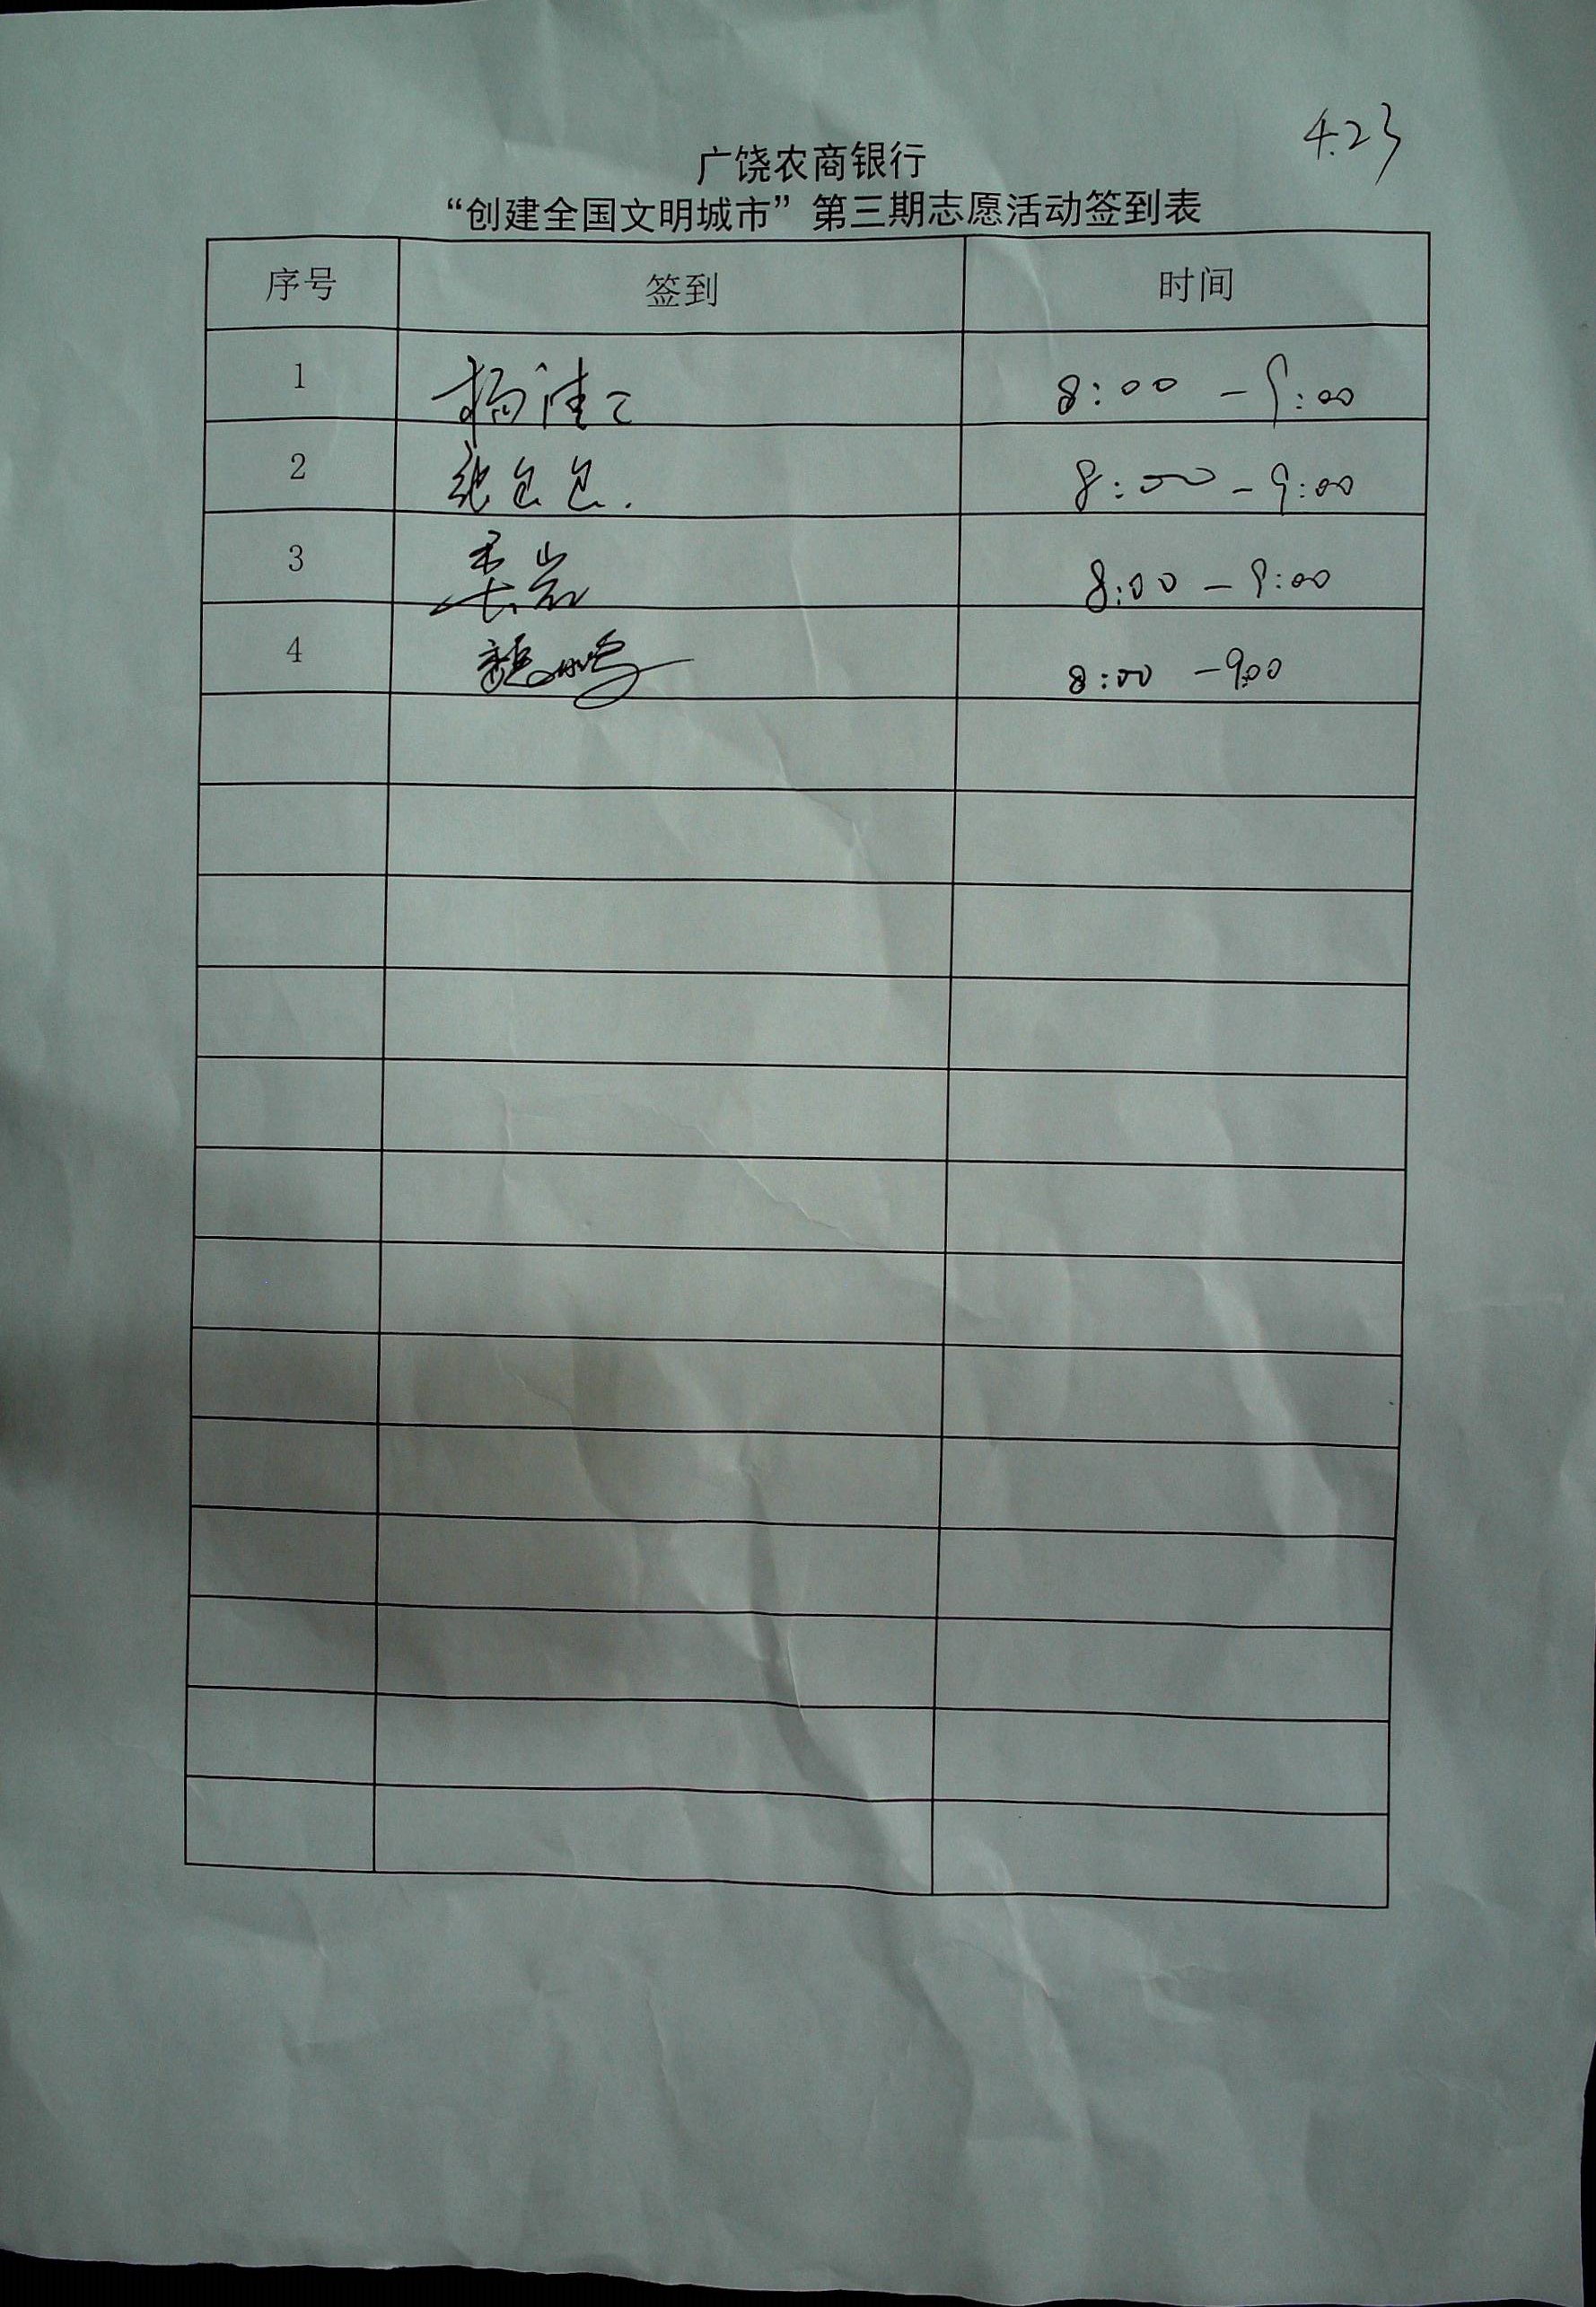 4.23
广饶农商银行
“创建全国文明城市”第三期志愿活动签到表
序号 签到 时间
1 8:00 - 9:00
2 8:00 - 9:00
3 8:00 - 9:00
4 8:00 - 9:00